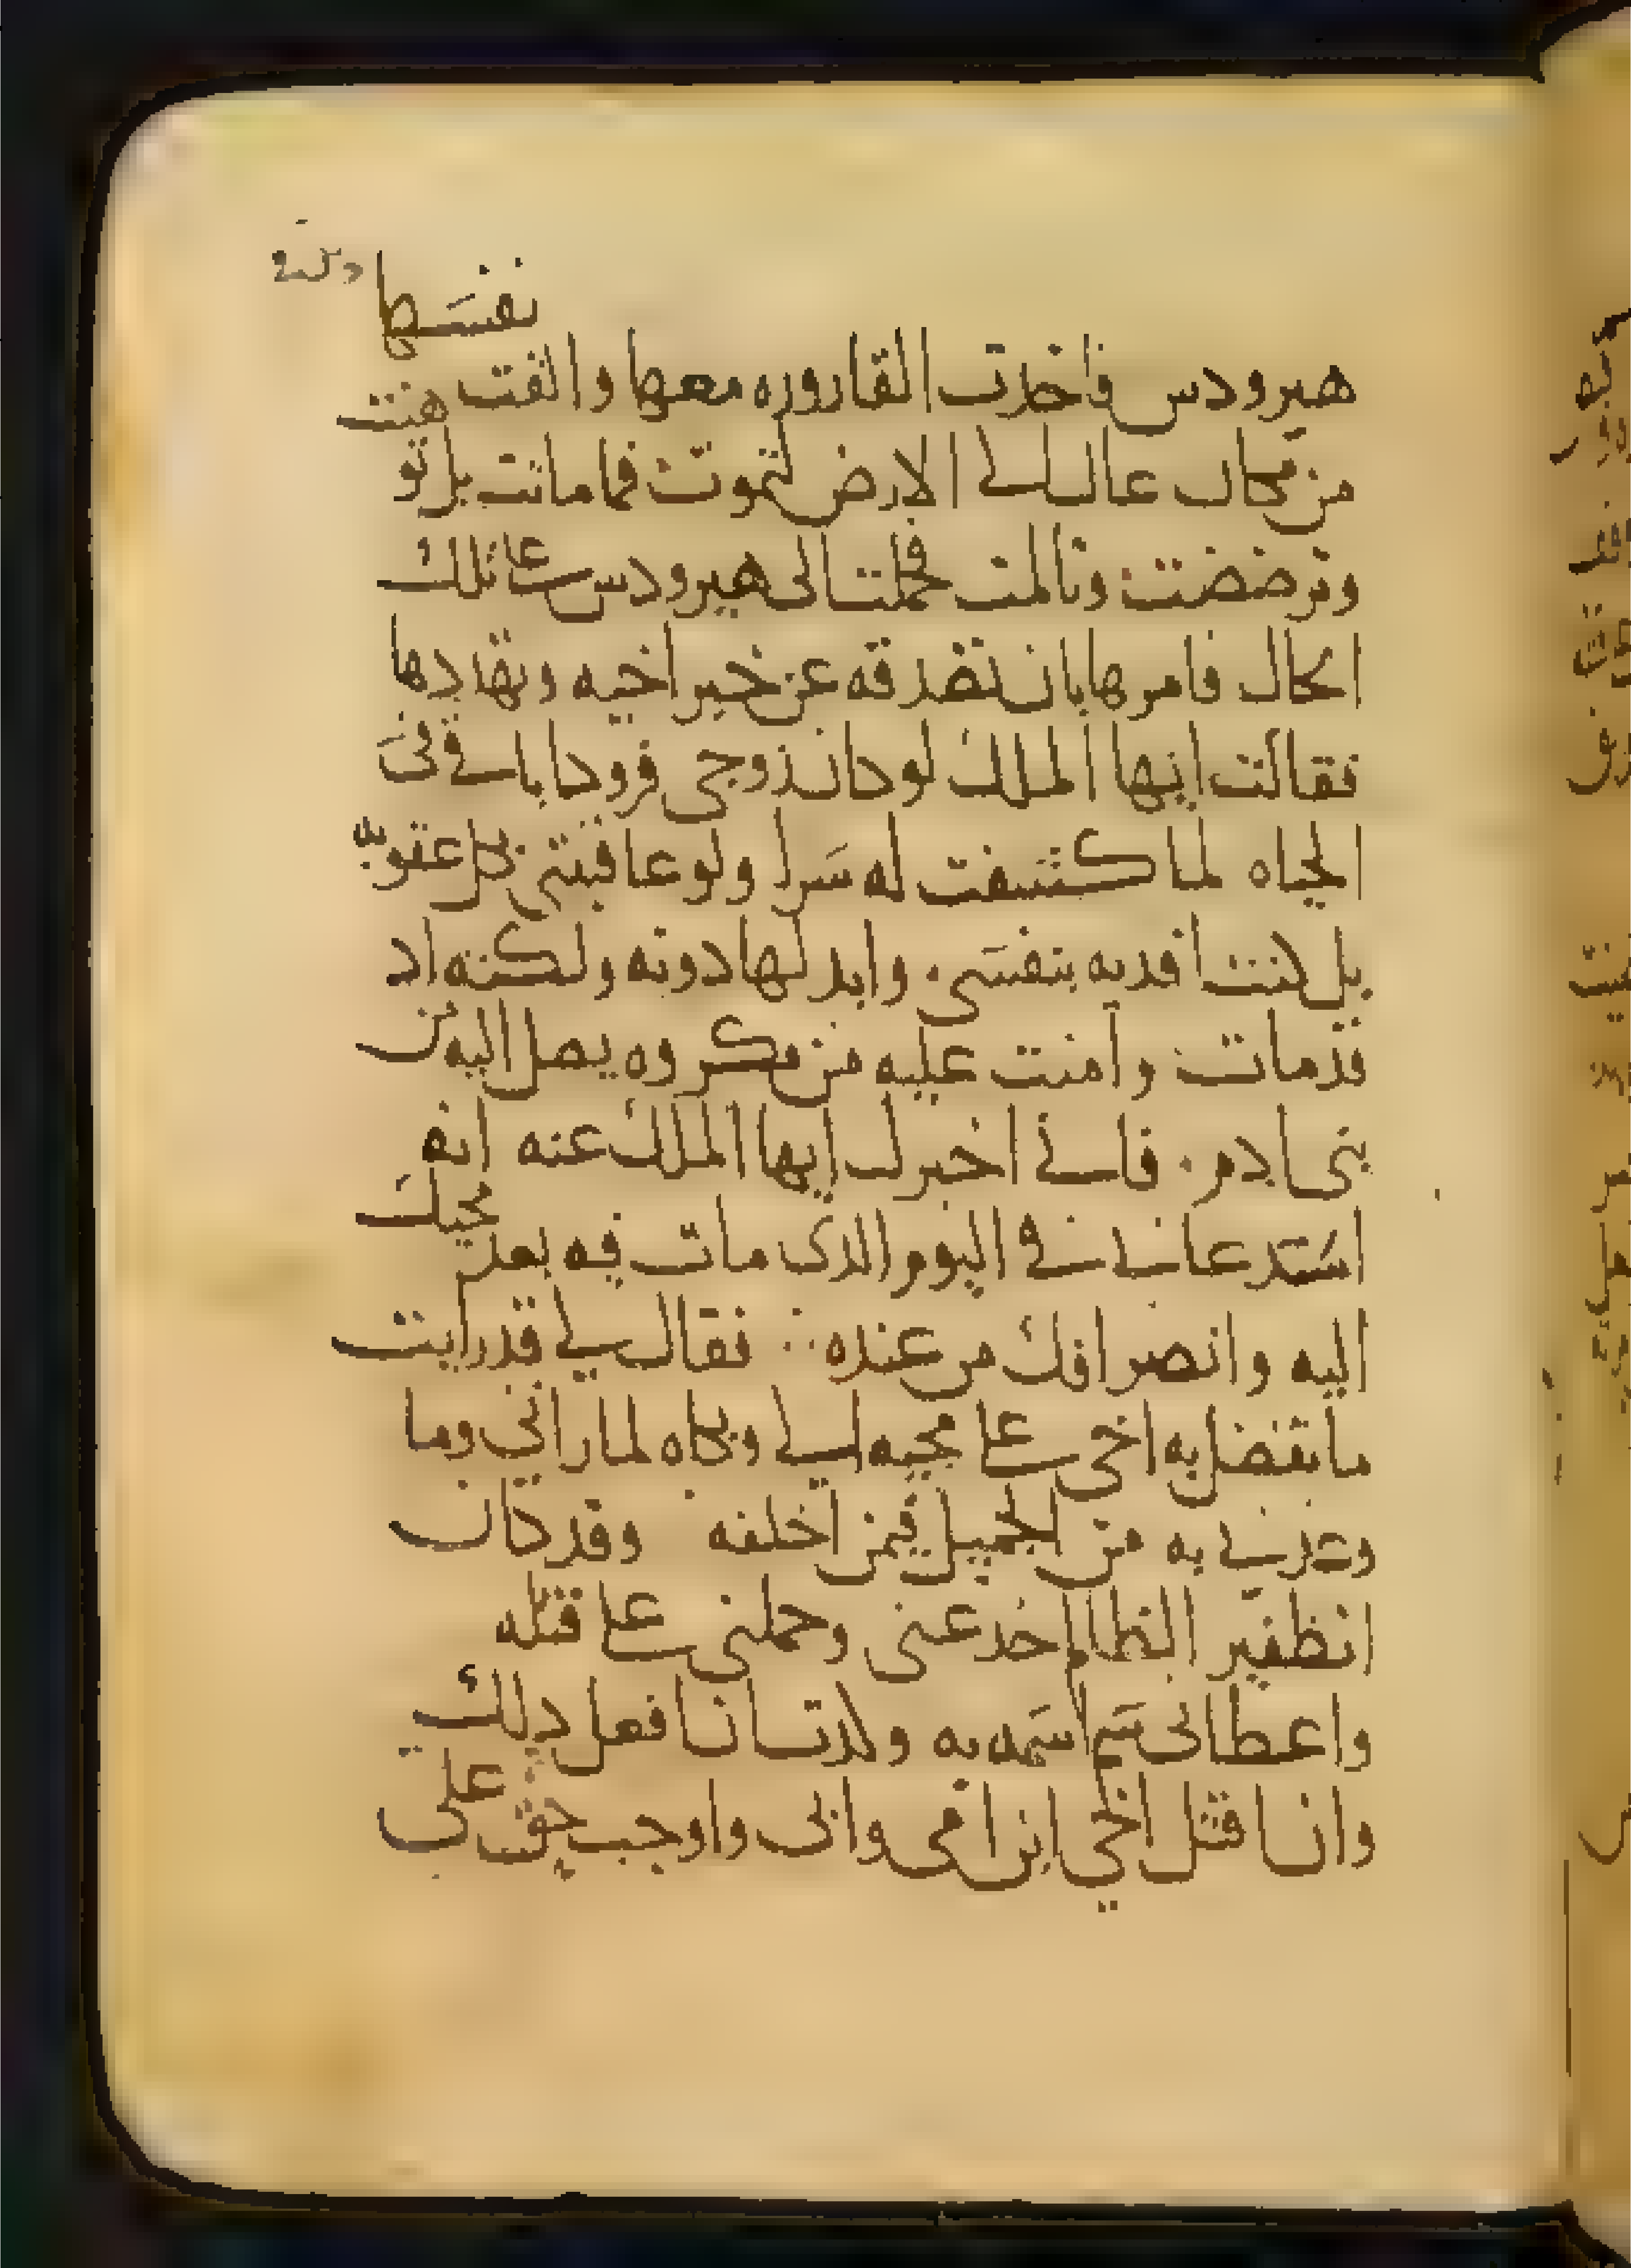 نفسها
هيرودس فاخدت القاروره معها والقت
من مكان عال الى الارض لتموت فما ماتت بل تو هنت
وترضضت وتالمت فحملت الى هيرودس على تلك
الحال فامرها بان تصدقه عن خبر اخيه وتهادها
فقالت ايها الملك لو كان زوجي فرودا باقى في
الحياه لما كشفت له سرا ولو عاقبتني بكل عقوبه
بل كنت افديه بنفسي. وابدلها دونه ولكنه اد
قد مات وامنت عليه من مكروه يصل اليه من
بني ادم. فاني اخبرك ايها الملك عنه انه
استدعاني في اليوم الدي مات فيه بعد مجيك
اليه وانصرافك من عنده ∴ فقال لي قد رايت
ما تفضل به اخي على مجيه الي وبكاه لما راني وما
وعدني به من الجميل فيمن اخلفه وقد كان
انطفير الظالم خدعني وحملني على قتله
واعطاني سم اسمه به وكدت ان افعل دلك
وان اقتل اخي ابن امي وابي واوجب حق علي